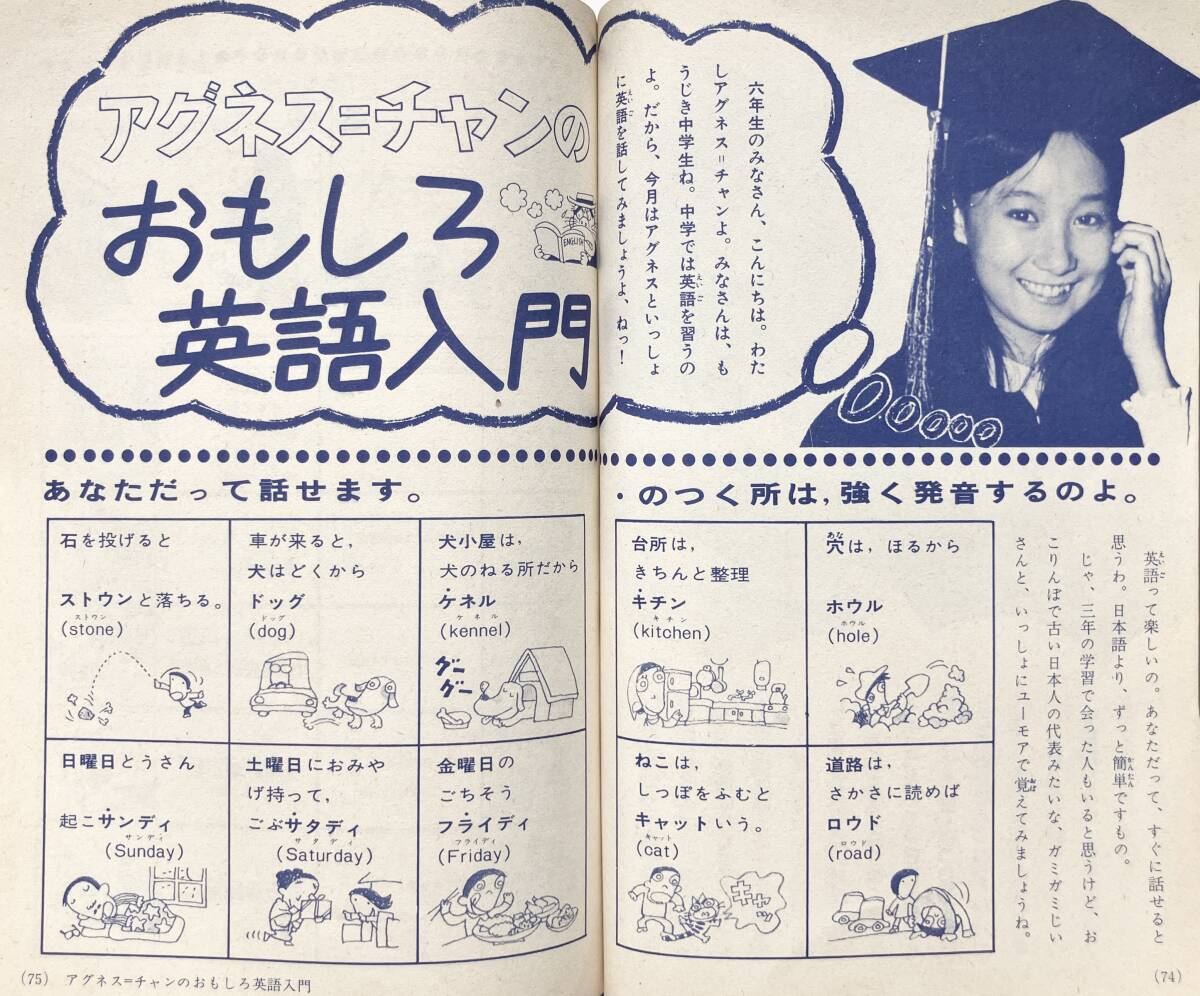 アグネス=チャンの
おもしろ
英語入門
ENGLISH
六年生のみなさん、こんにちは。わた
しアグネス=チャンよ。みなさんは、も
うじき中学生ね。中学では英語を習うの
よ。だから、今月はアグネスといっしょ
に英語を話してみましょうよ、ねっ!
英語って楽しいの。あなただって、すぐに話せると
思うわ。日本語より、ずっと簡単ですもの。
じゃ、三年の学習で会った人もいると思うけど、お
こりんぼで古い日本人の代表みたいな、ガミガミじい
さんと、いっしょにユーモアで覚えてみましょうね。
あなただって話せます。
・のつく所は,強く発音するのよ。
穴は,ほるから
ホウル
ホウル
(hole)
道路は,
さかさに読めば
ロウド
ロウド
(road)
台所は,
きちんと整理
キチン
キチン
(kitchen)
ねこは,
しっぽをふむと
キャットいう。
キャット
(cat)
キャッ
犬小屋は,
犬のねる所だから
ケネル
ケネル
(kennel)
グー
グー
金曜日の
ごちそう
フライディ
フライディ
(Friday)
車が来ると,
犬はどくから
ドッグ
ドッグ
(dog)
土曜日におみや
げ持って,
ごぶサタディ
サタディ
(Saturday)
石を投げると
ストウンと落ちる。
ストウン
(stone)
日曜日とうさん
起こサンディ
サンディ
(Sunday)
(75) アグネス=チャンのおもしろ英語入門
(74)